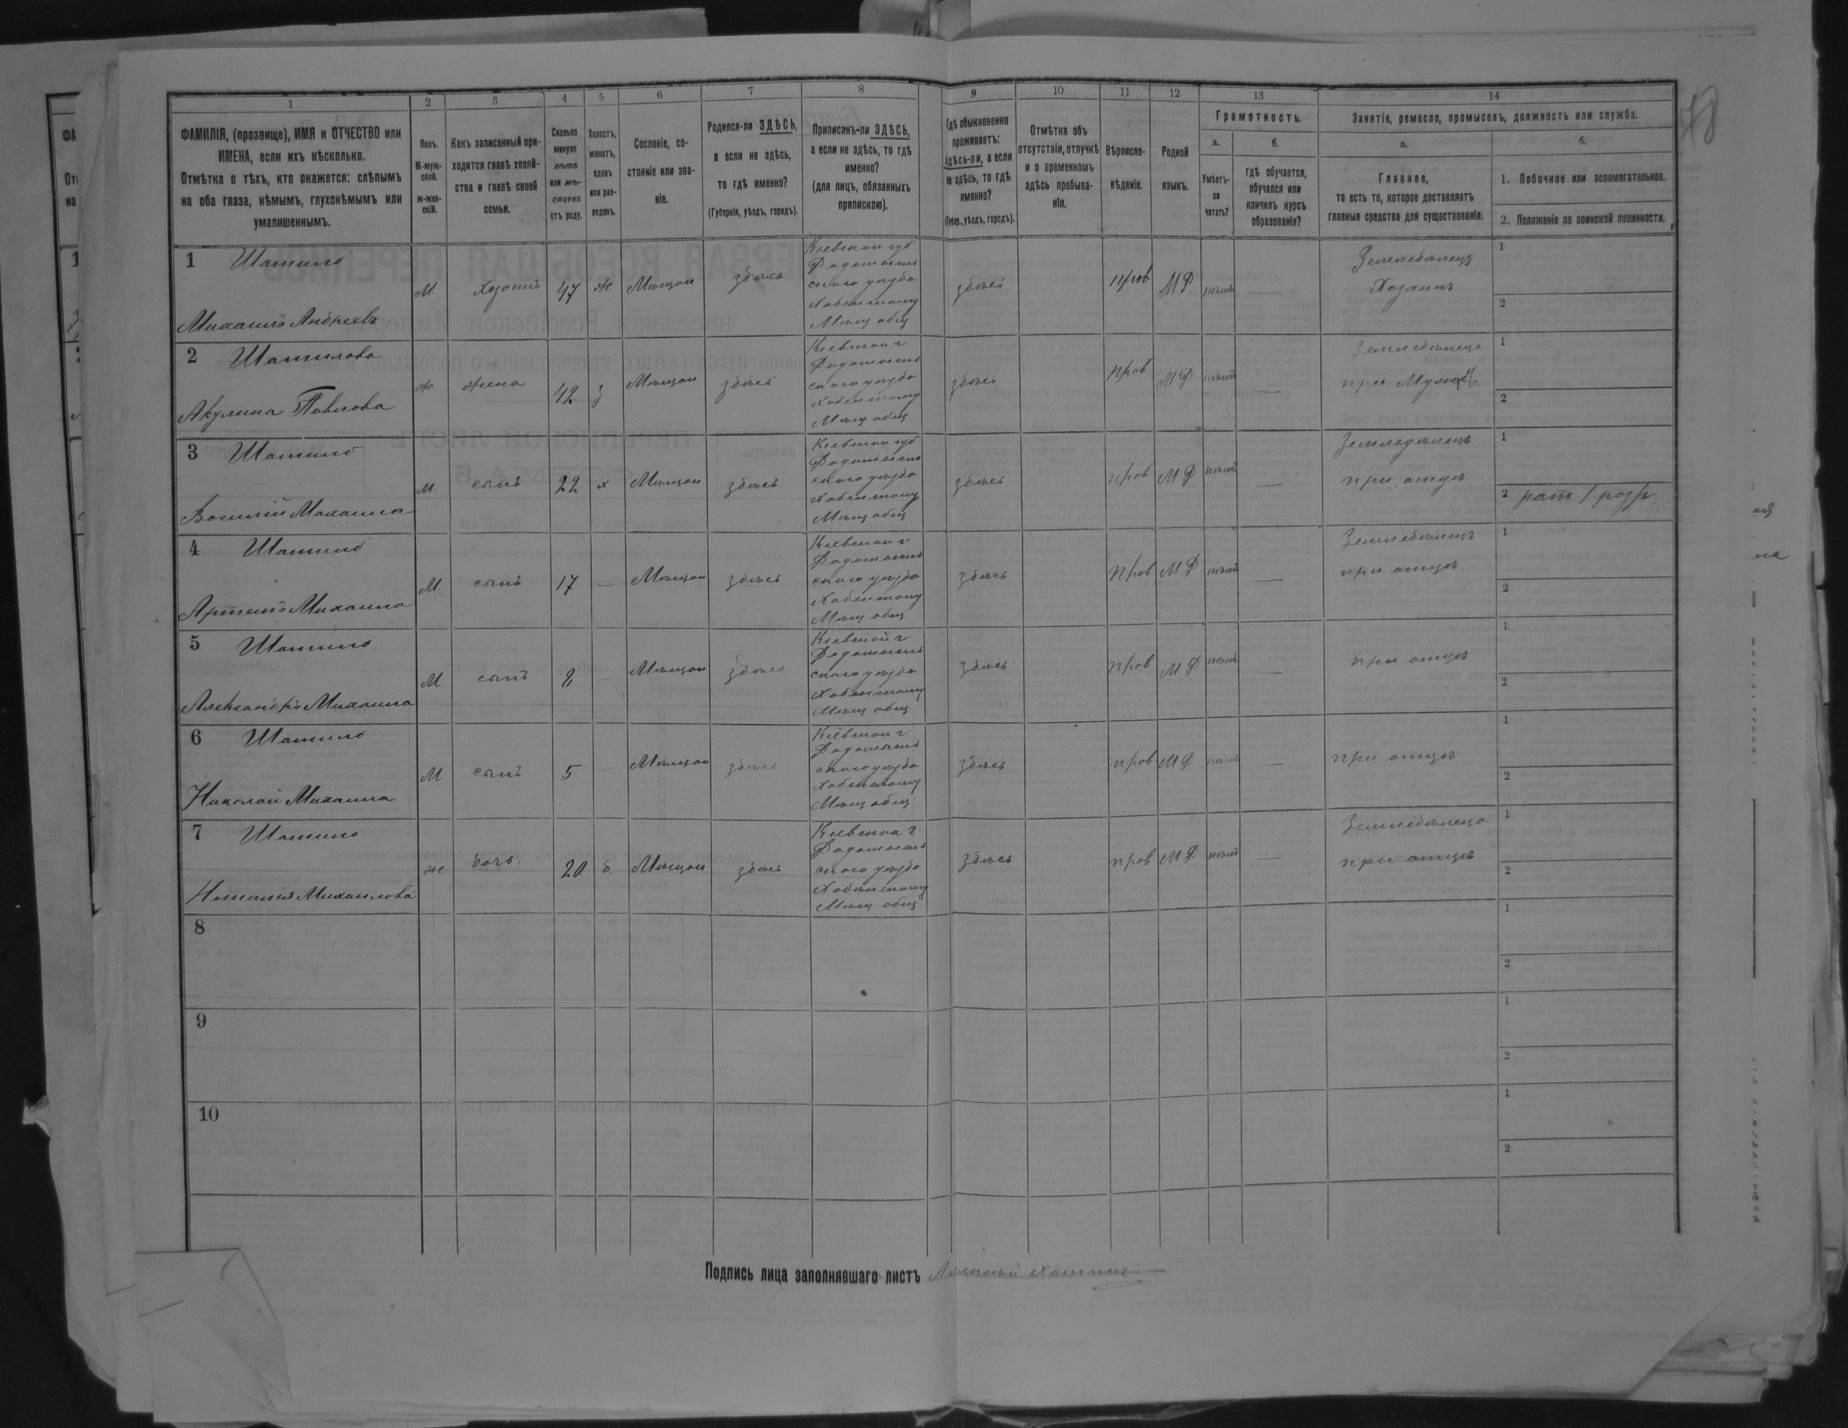 1 2 3 4 5 6 7 8 9 10 11 12 13 14
ФАМИЛІЯ, (прозвище), ИМЯ и ОТЧЕСТВО или
ИМЕНА, если ихъ нѣсколько.
Отмѣтка о тѣхъ, кто окажется: слѣпымъ
на оба глаза, нѣмымъ, глухонѣмымъ или
умалишеннымъ.
Полъ.
М-муж-
ской.
ж-жен-
скій.
Какъ записанный при-
ходится главѣ хозяй-
ства и главѣ своей
семьи.
Сколько
минуло
лѣтъ
или мѣ-
сяцевъ
отъ роду.
Холостъ,
женатъ,
вдовъ
или раз-
веденъ.
Сословіе, со-
стояніе или зва-
ніе.
Родился-ли ЗДѢСЬ,
а если не здѣсь,
то гдѣ именно?
(Губернія, уѣздъ, городъ).
Приписанъ-ли ЗДѢСЬ,
а если не здѣсь, то гдѣ
именно?
(для лицъ, обязанныхъ
припискою).
Гдѣ обыкновенно
проживаетъ:
здѣсь-ли, а если
не здѣсь, то гдѣ
именно?
(Губер., уѣздъ, городъ).
Отмѣтка объ
отсутствіи, отлучкѣ
и о временномъ
здѣсь пребыва-
ніи.
Вѣроиспо-
вѣданіе.
Родной
языкъ.
Грамотность.
а.
Умѣетъ-
ли
читать?
б.
гдѣ обучается,
обучался или
кончилъ курсъ
образованія?
Занятія, ремесло, промыселъ, должность или служба.
а.
Главное,
то есть то, которое доставляетъ
главныя средства для существованія.
б.
1. Побочное или вспомогательное.
2. Положеніе по воинской повинности.
1 Шатило
Михаилъ Андреевъ
М хозяинъ 47 ж Мѣщан здѣсь
Кіевской губ
Радомысль
скаго уѣзда
Хабенскому
Мѣщ общ
здѣсь пров М Р —
Земледѣлецъ
Хозяинъ
1
2
2 Шатилова
Акулина Павлова
ж жена 42 з Мѣщан здѣсь
Кіевской г
Радомысль
скаго уѣзда
Хабенскому
Мѣщ общ
здѣсь пров М Р —
Земледѣлецъ
при Мужѣ
1
2
3 Шатило
Василій Михаила
М. сынъ 22 х Мѣщан здѣсь
Кіевской губ
Радомысль
скаго уѣзда
Хабенскому
Мѣщ общ
здѣсь пров М Р —
Земледѣлецъ
при отцѣ
1
2 рат 1 разр
4 Шатило
Артемъ Михаила
М. сынъ 17 — Мѣщан здѣсь
Кіевской г
Радомысль
скаго уѣзда
Хабенскому
Мѣщ общ
здѣсь пров М Р —
Земледѣлецъ
при отцѣ
1
2
5 Шатило
Александръ Михаила
М сынъ 8 — Мѣщан здѣсь
Кіевской г
Радомысль
скаго уѣзда
Хабенскому
Мѣщ общ
здѣсь пров М Р —
при отцѣ
1
2
6 Шатило
Николай Михаила
М сынъ 5 — Мѣщан здѣсь
Кіевской г
Радомысль
скаго уѣзда
Хабенскому
Мѣщ общ
здѣсь пров М Р —
при отцѣ
1
2
7 Шатило
Наталія Михаилова
ж дочь 20 д. Мѣщан здѣсь
Кіевской г
Радомысль
скаго уѣзда
Хабенскому
Мѣщ общ
здѣсь пров М Р —
Земледѣлецъ
при отцѣ
1
2
8
1
2
9
1
2
10
1
2
Подпись лица заполнявшаго листъ